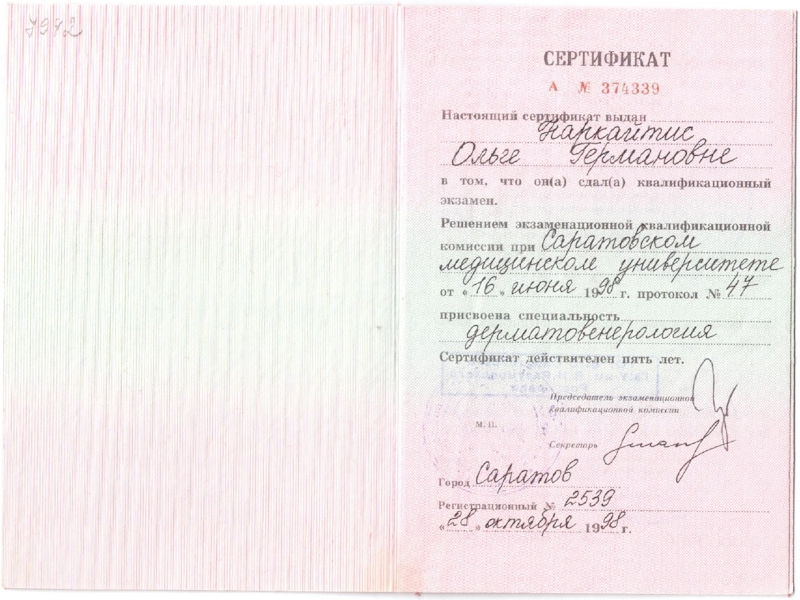 7942
СЕРТИФИКАТ
А № 374339
Настоящий сертификат выдан
Наркайтис
Ольге Германовне
в том, что он(а) сдал(а) квалификационный
экзамен.
Решением экзаменационной квалификационной
комиссии при Саратовском
медицинском университете
от «16» июня 1998 г. протокол № 47
присвоена специальность
дерматовенерология
Сертификат действителен пять лет.
Председатель экзаменационной
квалификационной комиссии
М. П.
Секретарь
Город Саратов
Регистрационный № 2539
«28» октября 1998 г.